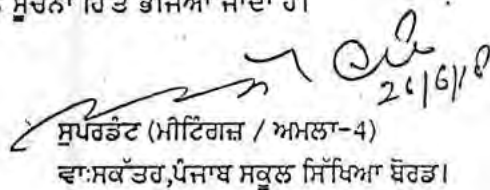 ਸੂਚਨਾ ਹਿੱਤ ਭੇਜਿਆ ਜਾਂਦਾ ਹੈ।
26/6/18
ਸੁਪਰਡੰਟ (ਮੀਟਿੰਗਜ਼ / ਅਮਲਾ-4)
ਵਾ:ਸਕੱਤਰ,ਪੰਜਾਬ ਸਕੂਲ ਸਿੱਖਿਆ ਬੋਰਡ।